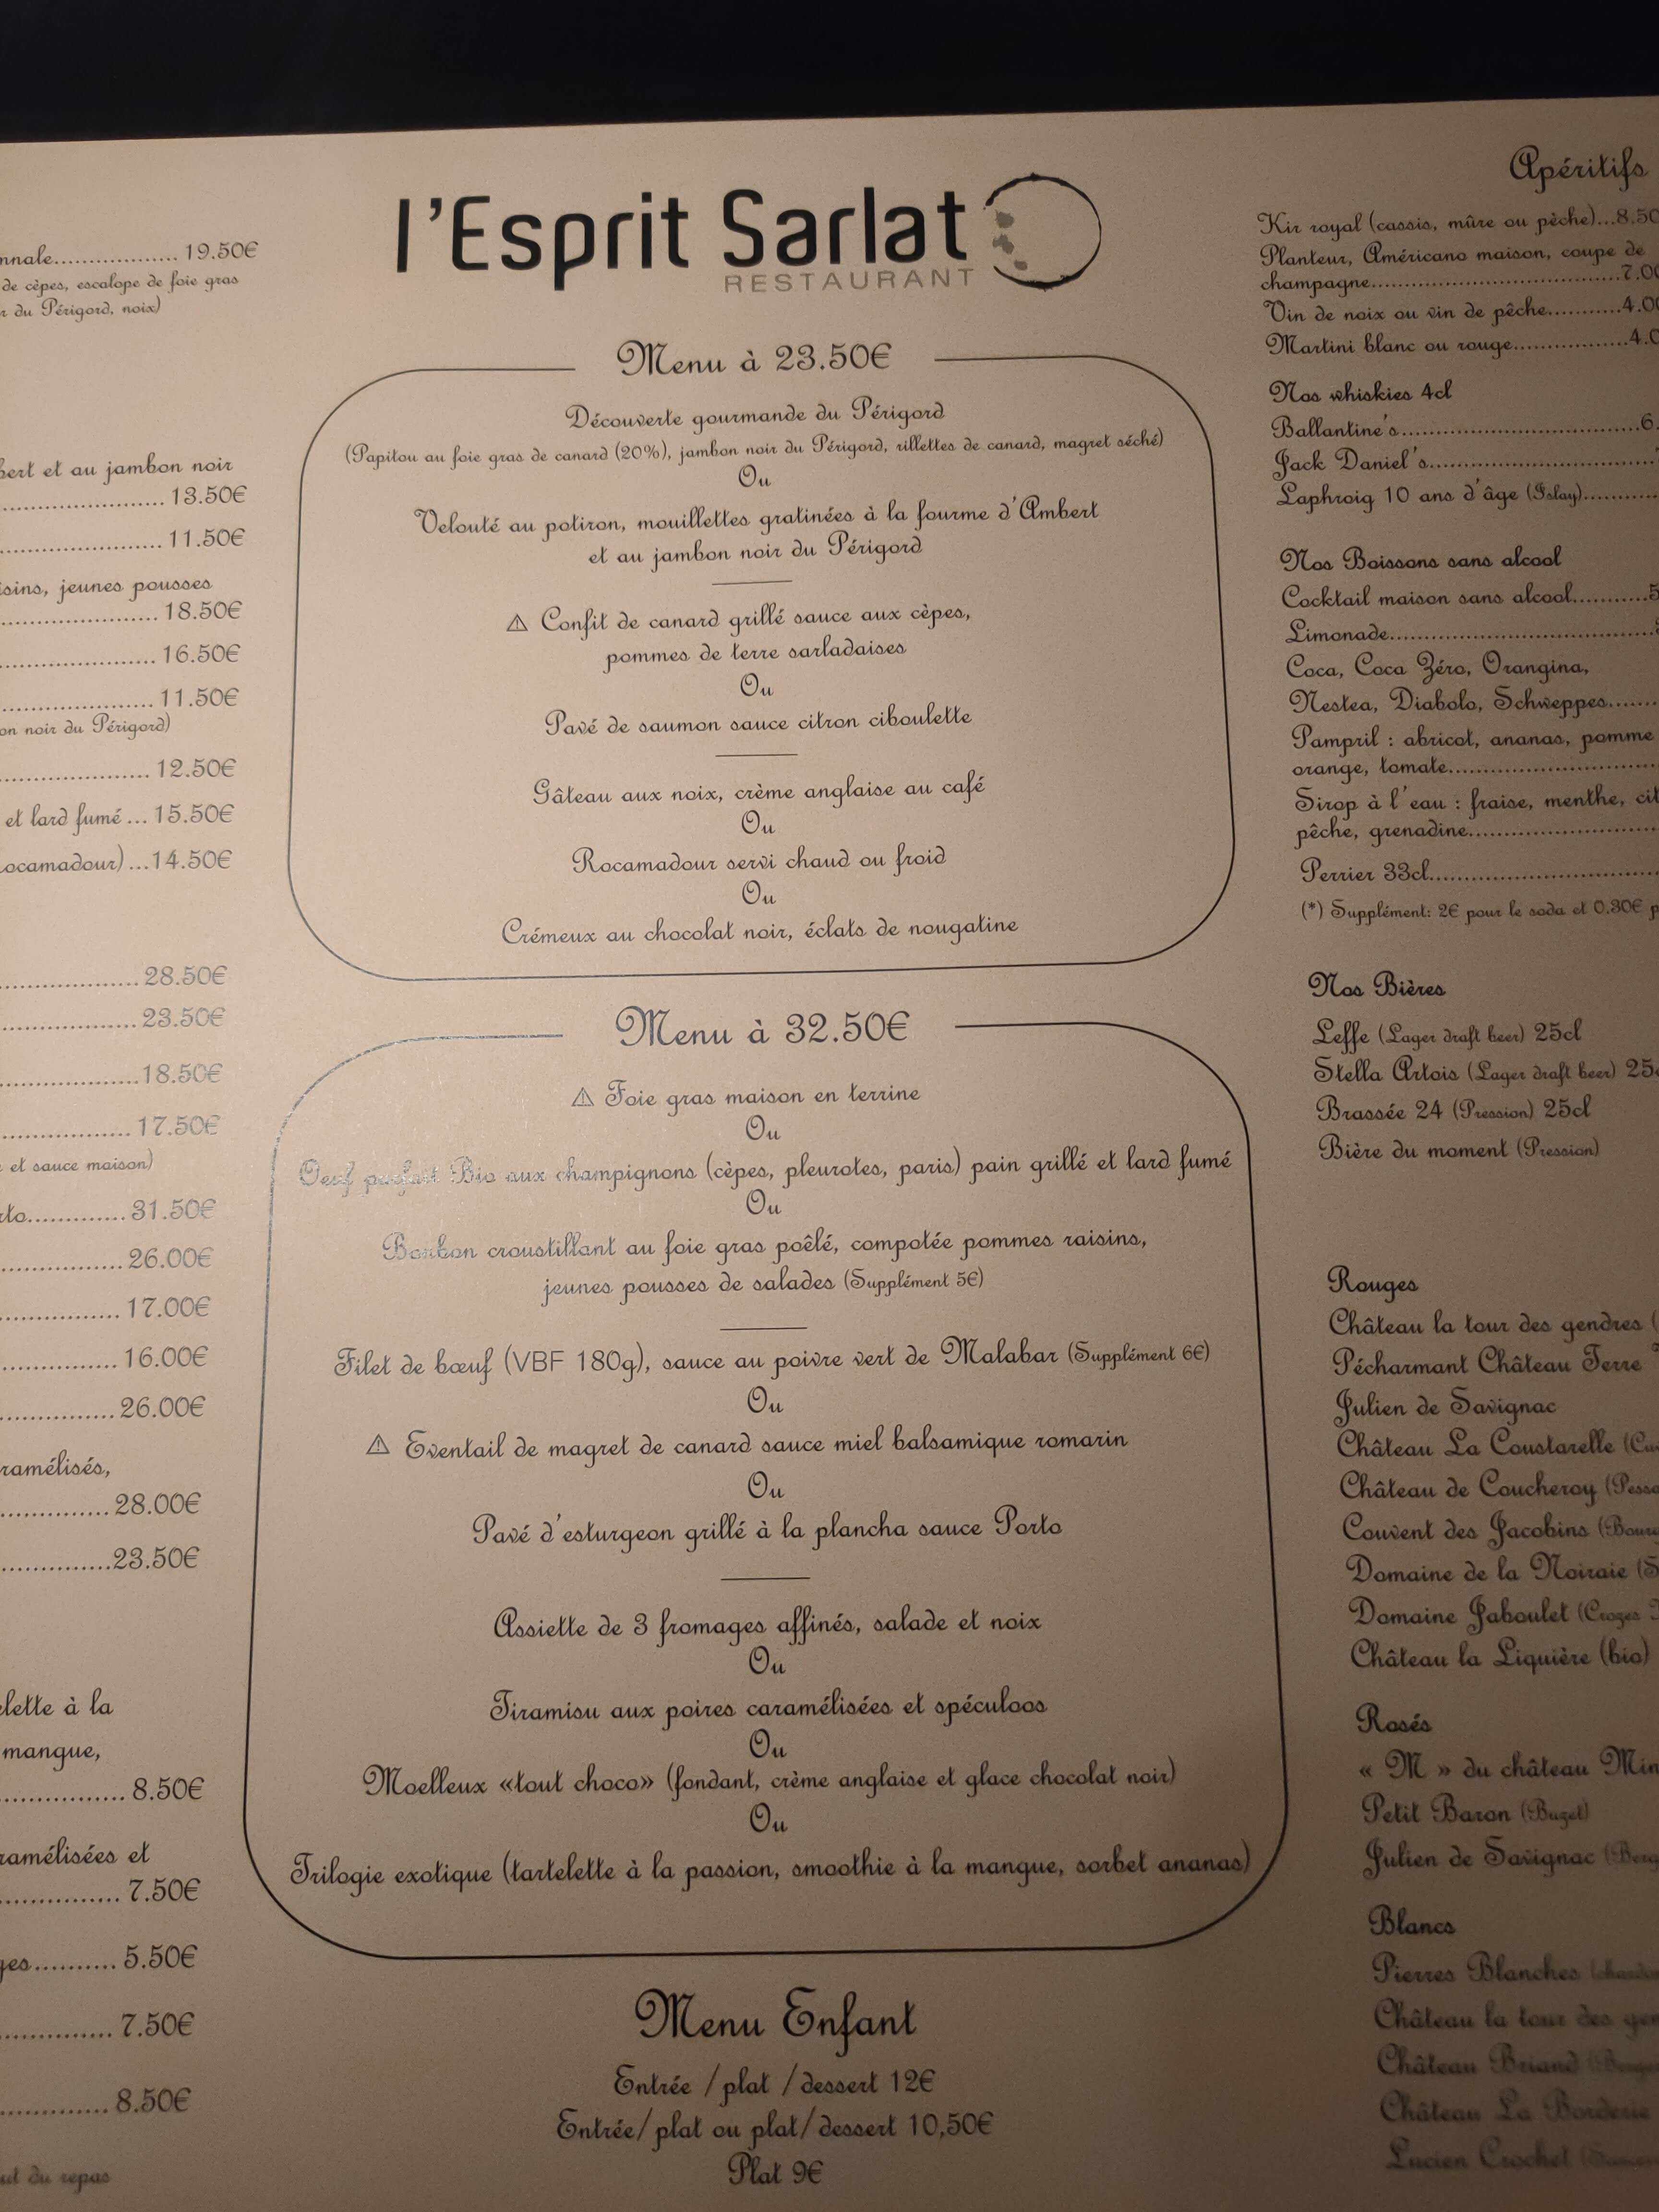 19.50€
de cèpes, escalope de foie gras
du Périgord, noix)
et au jambon noir
13.50€
11.50€
jeunes pousses
18.50€
16.50€
11.50€
noir du Périgord)
12.50€
et lard fumé ... 15.50€
...14.50€
28.50€
23.50€
18.50€
17.50€
et sauce maison)
31.50€
26.00€
17.00€
16.00€
26.00€
28.00€
23.50€
à la
mangue,
8.50€
et
7.50€
5.50€
7.50€
8.50€
du repas
l'Esprit Sarlat
RESTAURANT
Menu à 23.50€
Découverte gourmande du Périgord
(Papitou au foie gras de canard (20%), jambon noir du Périgord, rillettes de canard, magret séché)
Ou
Velouté au potiron, mouillettes gratinées à la fourme d'Ambert
et au jambon noir du Périgord
⚠ Confit de canard grillé sauce aux cèpes,
pommes de terre sarladaises
Ou
Pavé de saumon sauce citron ciboulette
Gâteau aux noix, crème anglaise au café
Ou
Rocamadour servi chaud ou froid
Ou
Crémeux au chocolat noir, éclats de nougatine
Menu à 32.50€
⚠ Foie gras maison en terrine
Ou
Oeuf parfait Bio aux champignons (cèpes, pleurotes, paris) pain grillé et lard fumé
Ou
Bonbon croustillant au foie gras poêlé, compotée pommes raisins,
jeunes pousses de salades (Supplément 5€)
Filet de bœuf (VBF 180g), sauce au poivre vert de Malabar (Supplément 6€)
Ou
⚠ Eventail de magret de canard sauce miel balsamique romarin
Ou
Pavé d'esturgeon grillé à la plancha sauce Porto
Assiette de 3 fromages affinés, salade et noix
Ou
Tiramisu aux poires caramélisées et spéculoos
Ou
Moelleux «tout choco» (fondant, crème anglaise et glace chocolat noir)
Ou
Trilogie exotique (tartelette à la passion, smoothie à la mangue, sorbet ananas)
Menu Enfant
Entrée /plat /dessert 12€
Entrée/plat ou plat/dessert 10,50€
Plat 9€
Apéritifs
Kir royal (cassis, mûre ou pêche)...8.50
Planteur, Américano maison, coupe de
champagne...7.00
Vin de noix ou vin de pêche...4.00
Martini blanc ou rouge...4.0
Nos whiskies 4cl
Ballantine's...6.
Jack Daniel's
Laphroig 10 ans d'âge (Islay)
Nos Boissons sans alcool
Cocktail maison sans alcool...5
Limonade
Coca, Coca Zéro, Orangina,
Nestea, Diabolo, Schweppes
Pampril : abricot, ananas, pomme
orange, tomate
Sirop à l'eau : fraise, menthe,
pêche, grenadine
Perrier 33cl
(*) Supplément: 2€ pour le soda et 0.30€
Nos Bières
Leffe (Lager draft beer) 25cl
Stella Artois (Lager draft beer) 25c
Brassée 24 (Pression) 25cl
Bière du moment (Pression)
Rouges
Château la tour des gendres (
Pécharmant Château Terre
Julien de Savignac
Château La Coustarelle
Château de Coucheroy
Couvent des Jacobins
Domaine de la Noiraie
Domaine Jaboulet
Château la Liquière (bio)
Rosés
« M » du château
Petit Baron (Buzet)
Julien de Savignac
Blancs
Pierres Blanches
Château la tour des
Château Briand
Château La Borderie
Lucien Crochet